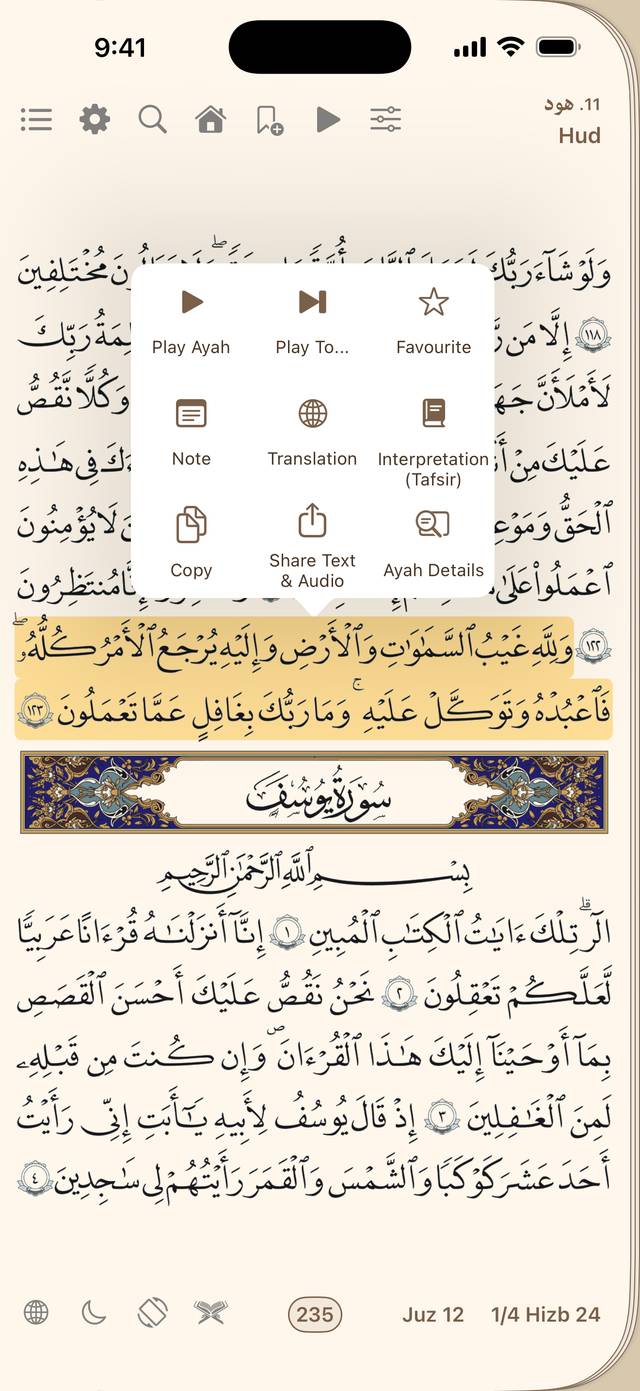 9:41
11. هود
Hud
وَلَوْ شَآءَ رَبُّكَ مُخْتَلِفِينَ
١١٨ إِلَّا مَن رَّبِّكَ
لَأَمْلَأَنَّ وَكُلًّا نَّقُصُّ
عَلَيْكَ مِنْ فِى هَـٰذِهِ
ٱلْحَقُّ لَا يُؤْمِنُونَ
ٱعْمَلُوا۟ عَلَىٰ مُنتَظِرُونَ
Play Ayah
Play To...
Favourite
Note
Translation
Interpretation
(Tafsir)
Copy
Share Text
& Audio
Ayah Details
١٢٢ وَلِلَّهِ غَيْبُ ٱلسَّمَـٰوَٰتِ وَٱلْأَرْضِ وَإِلَيْهِ يُرْجَعُ ٱلْأَمْرُ كُلُّهُۥ
فَٱعْبُدْهُ وَتَوَكَّلْ عَلَيْهِ ۚ وَمَا رَبُّكَ بِغَـٰفِلٍ عَمَّا تَعْمَلُونَ ١٢٣
سُورَةُ يُوسُفَ
بِسْمِ ٱللَّهِ ٱلرَّحْمَـٰنِ ٱلرَّحِيمِ
الٓر ۚ تِلْكَ ءَايَـٰتُ ٱلْكِتَـٰبِ ٱلْمُبِينِ ١ إِنَّآ أَنزَلْنَـٰهُ قُرْءَٰنًا عَرَبِيًّا
لَّعَلَّكُمْ تَعْقِلُونَ ٢ نَحْنُ نَقُصُّ عَلَيْكَ أَحْسَنَ ٱلْقَصَصِ
بِمَآ أَوْحَيْنَآ إِلَيْكَ هَـٰذَا ٱلْقُرْءَانَ وَإِن كُنتَ مِن قَبْلِهِۦ
لَمِنَ ٱلْغَـٰفِلِينَ ٣ إِذْ قَالَ يُوسُفُ لِأَبِيهِ يَـٰٓأَبَتِ إِنِّى رَأَيْتُ
أَحَدَ عَشَرَ كَوْكَبًا وَٱلشَّمْسَ وَٱلْقَمَرَ رَأَيْتُهُمْ لِى سَـٰجِدِينَ ٤
235
Juz 12
1/4 Hizb 24